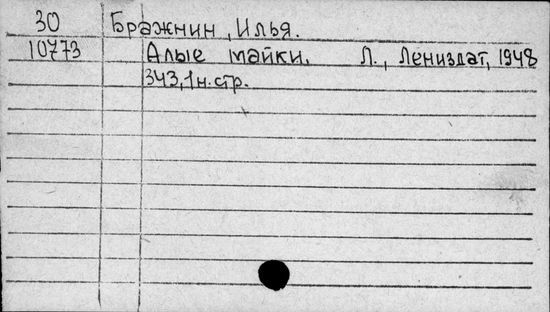 30 Бражнин, Илья.
10773 Алые майки. Л., Лениздат, 1948
343, 1н.стр.